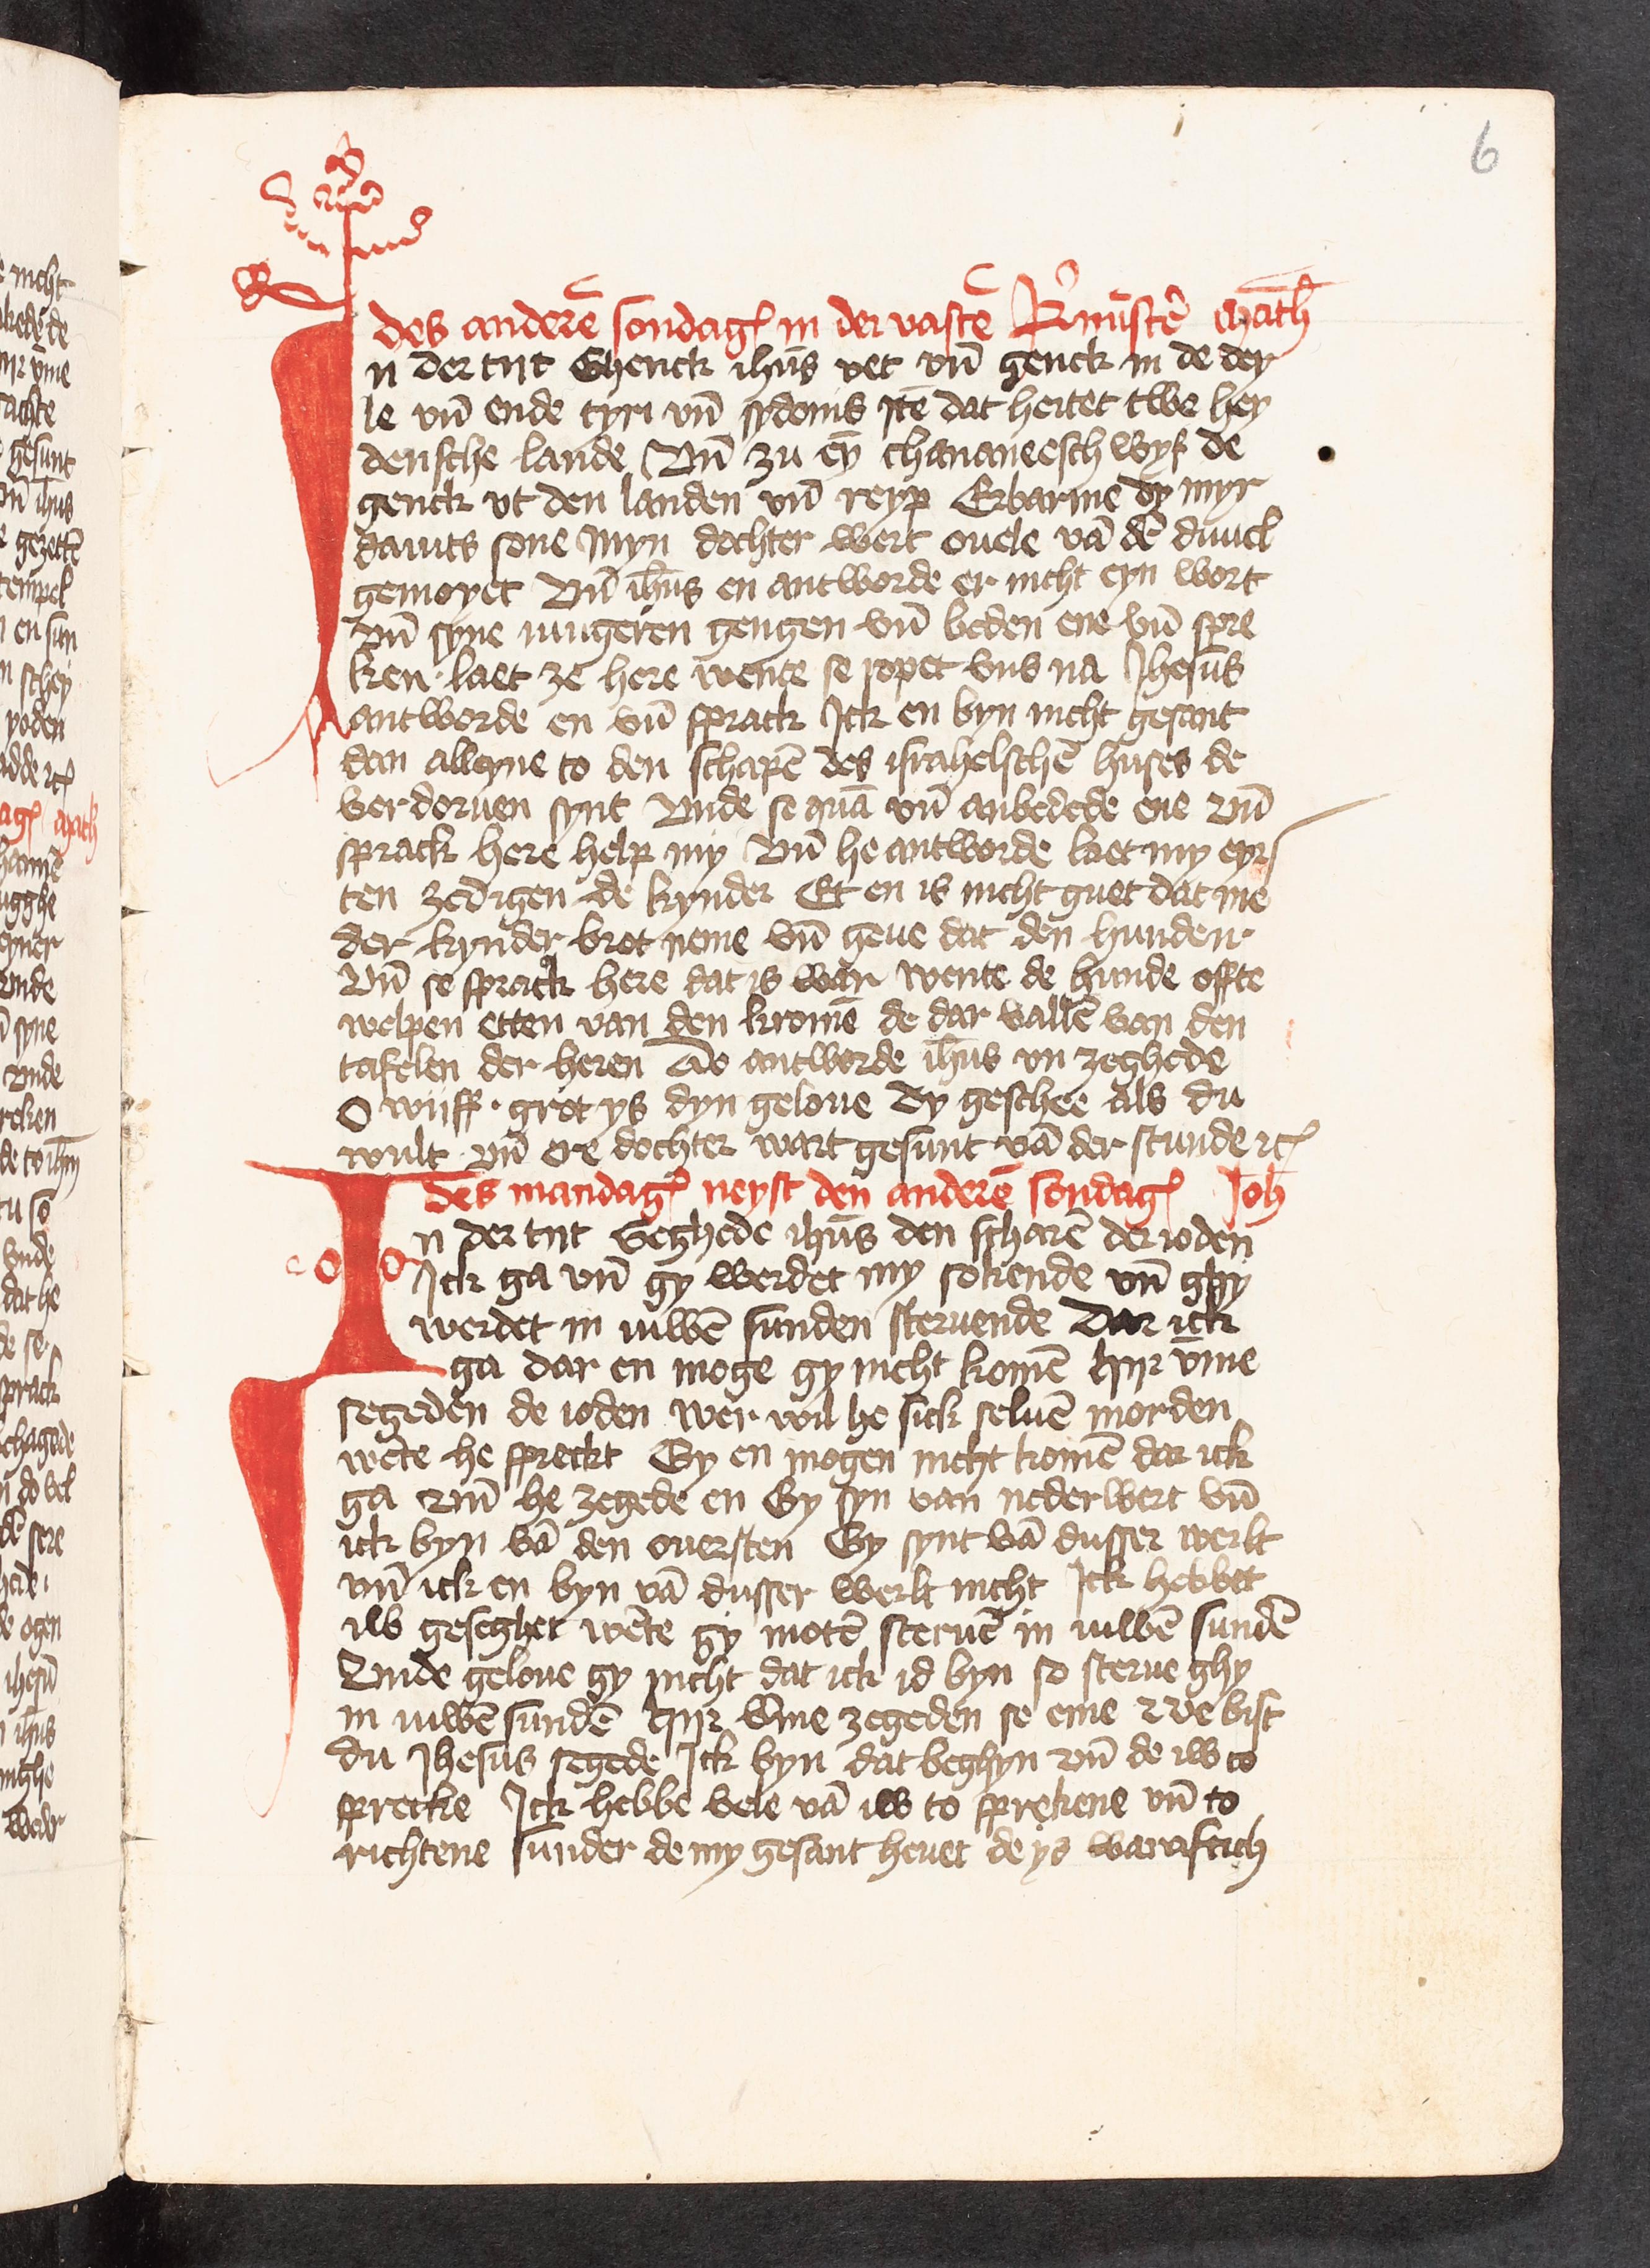 6
des anderē sondag in der vastē Rimīstē math
In der tyt Ghenck ihūs vet vn̄ genck in de dey
le vn̄ ende tyri vn̄ sydonis itē dat hertet twe hey
densche lande Vn̄ zu ey̅ chananeesch wyf de
genck vt den landen vn̄ reyp Erbarme dy myr
dauits sone Myn dochter wert ouele vā dē duuel
gemoyet Vn̄ ihūs en antworde er nicht eyn wort
Vn̄ syne iungeren gengen vn̄ beden ene vn̄ spre
ken laet ze here wente se ropet vns na Jhesus
antworde en vn̄ sprack Jck en byn nicht gesant
dan alleyne to den schapē des israhelschē huses de
verdoruen synt Vnde se quā vn̄ anbedede ene Vn̄
sprack here help my Vn̄ he antworde laet my eyrs
ten zedigen de kynder Et en is nicht guet dat me
der kynder brot neme vn̄ geue dat den hunden
Vn̄ se sprack here dat is war wente de hunde offte
welpen etten van den kromē de dar vallē van den
tafelen der heren Do antworde ihūs vn zeghede
O wiiff grot ys dyn geloue dy geschee als du
wult vn̄ ere dochter wart gesunt vā der stunde rc
des mandag neyst den anderē sondag Joh
In der tyt Seghede ihūs den scharē der ioden
Jck ga vn̄ gy werdet my sokende vn̄ ghy
werdet in iuwē sunden steruende Dar ick
ga dar en moge gy nicht komē hijr v̄me
segeden de ioden wer wil he sick seluē morden
wēte he spreckt Gy en mogen nicht komē dar ick
ga vn̄ he zegede en Gy syn van nederwert vn̄
ick byn vā den ouersten Gy synt vā dusser werlt
vn̄ ick en byn vā dusser werlt nicht Jck hebbet
iw geseghet wēte gy motē steruē in iuwē sundē
Vnde geloue gy nicht dat ick id byn so sterue ghy
in iuwē sundē hijr v̄me zegeden se eme we bist
du Jhesus segede Jck byn dat beghyn vn̄ de iw to
sprecke Jck hebbe vele vā iw to sprekene vn̄ to
richtene sunder de my gesant heuet de ys waraftich